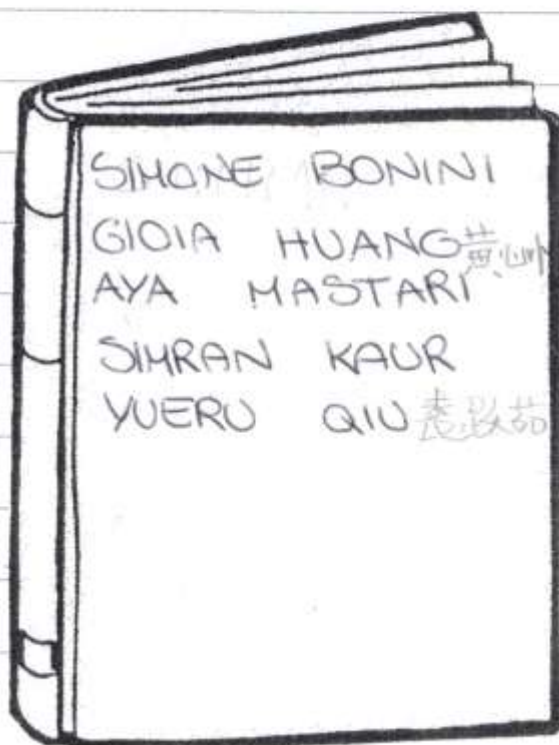 SIMONE BONINI
GIOIA HUANG 黄
AYA MASTARI
SIMRAN KAUR
YUERU QIU